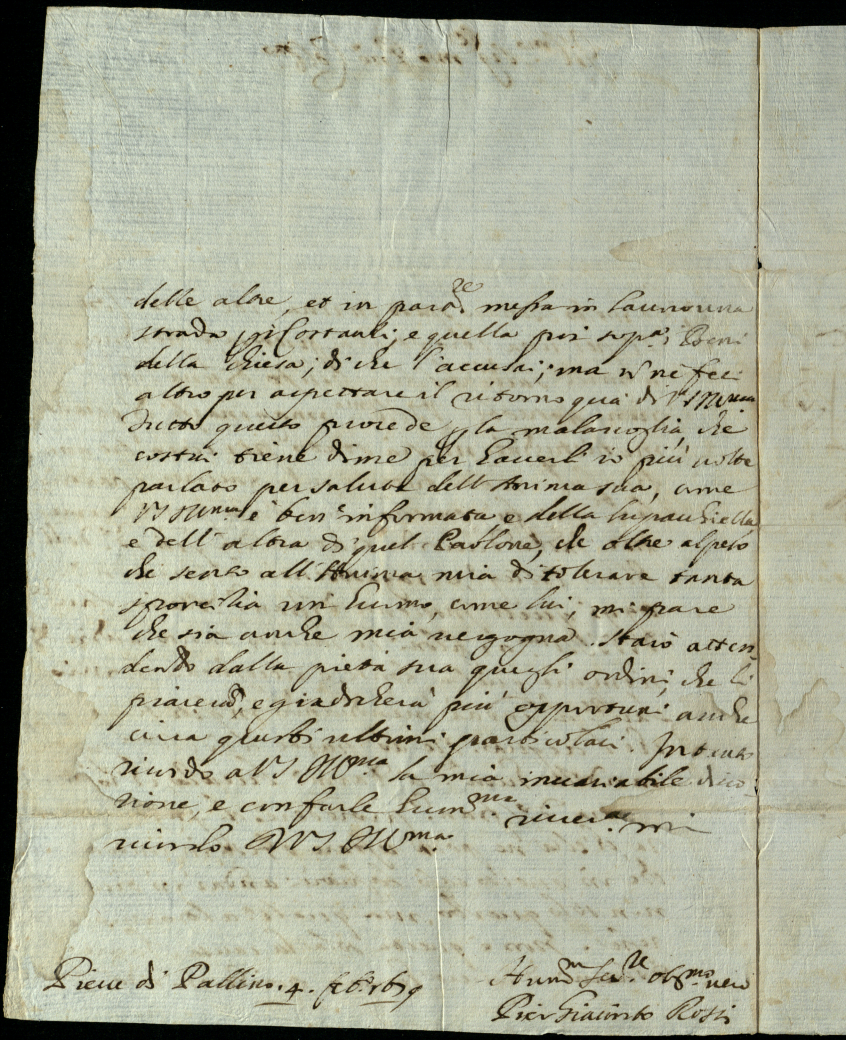 delle altre, et in par.re messa in
strada, e quella poi sop.a i Beni
della Chiesa; di che l'accusai; ma nè feci
altro per aspettare il ritorno quà di VS Ill.ma
Tutto questo procede la malavoglia, che
costui tiene di me per haverli io più volte
parlato per salute dell'Anima sua, come
VS Ill.ma è ben informata e della
e dell'altra di quel, che oltre al peso
che sento all'Anima mia di tolerare tanta
sporcitia un huomo, come lui, mi pare
che sia anche mia vergogna. Starò atten
dendo dalla pietà sua quegli ordini, che li
piacerà, e giudicherà più opportuni anche
circa questi ultimi particolari Intanto
ricordo a VS Ill.ma la mia invariabile divo
tione, e con farle hum.ma river.a mi
ricordo DVS Ill.ma
Pieve di 4. feb. 1679
Hum.o Ser.re obb.mo vero
Pier Giacinto Rossi